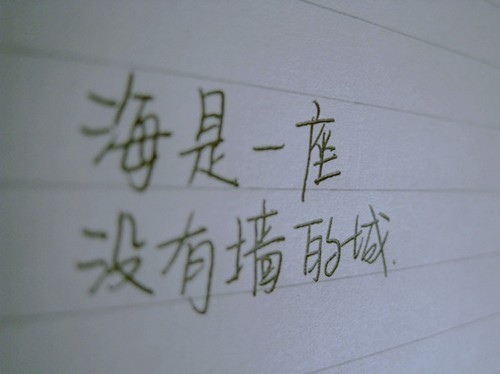 海是一座
没有墙的城.